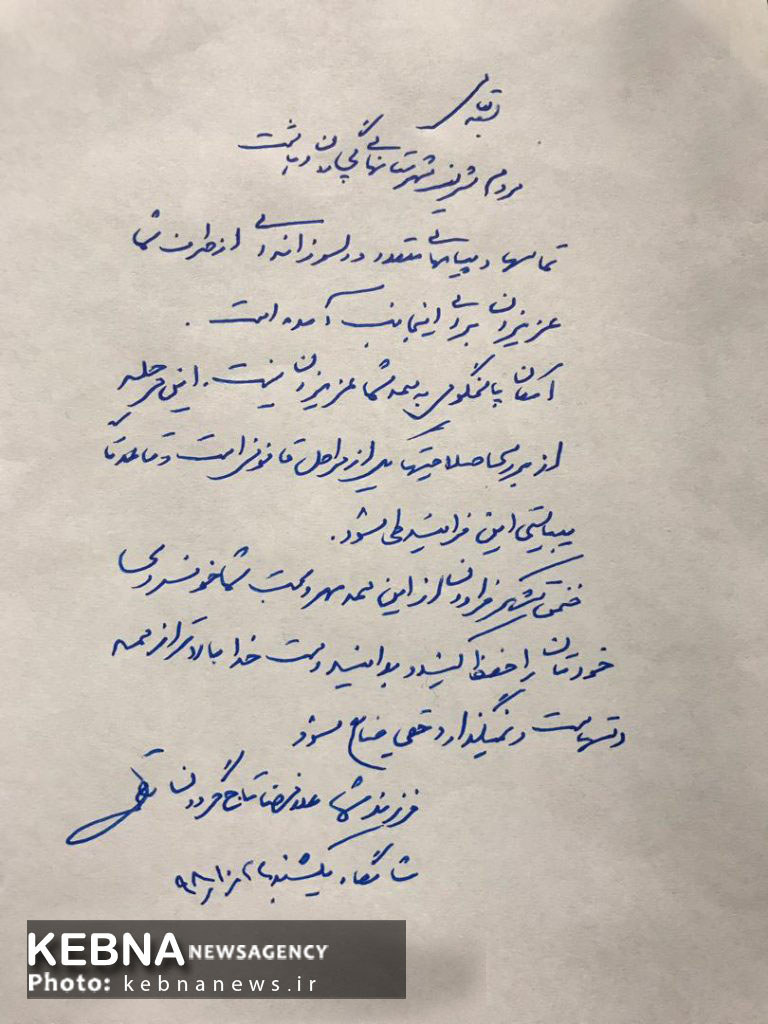 بسمه تعالی
مردم شریف شهرستانهای گچساران و باشت
تماسها و پیامهای متعدد و دلسوزانه ای از طرف شما
عزیزان برای اینجانب آمده است .
امکان پاسخگویی به همه شما عزیزان نیست . این مرحله
از بررسی صلاحیتها یکی از مراحل قانونی است و قاعدتاً
میبایستی این فرایند طی شود .
ضمن تشکر فراوان از این همه مهر و محبت شما خونسردی
خودتان را حفظ کنید و بدانید دست خدا بالاتر از همه
دستهاست و نمیگذارد حقی ضایع شود
فرزند شما غلامرضا تاجگردون
شامگاه یکشنبه
KEBNA NEWSAGENCY
Photo: kebnanews.ir